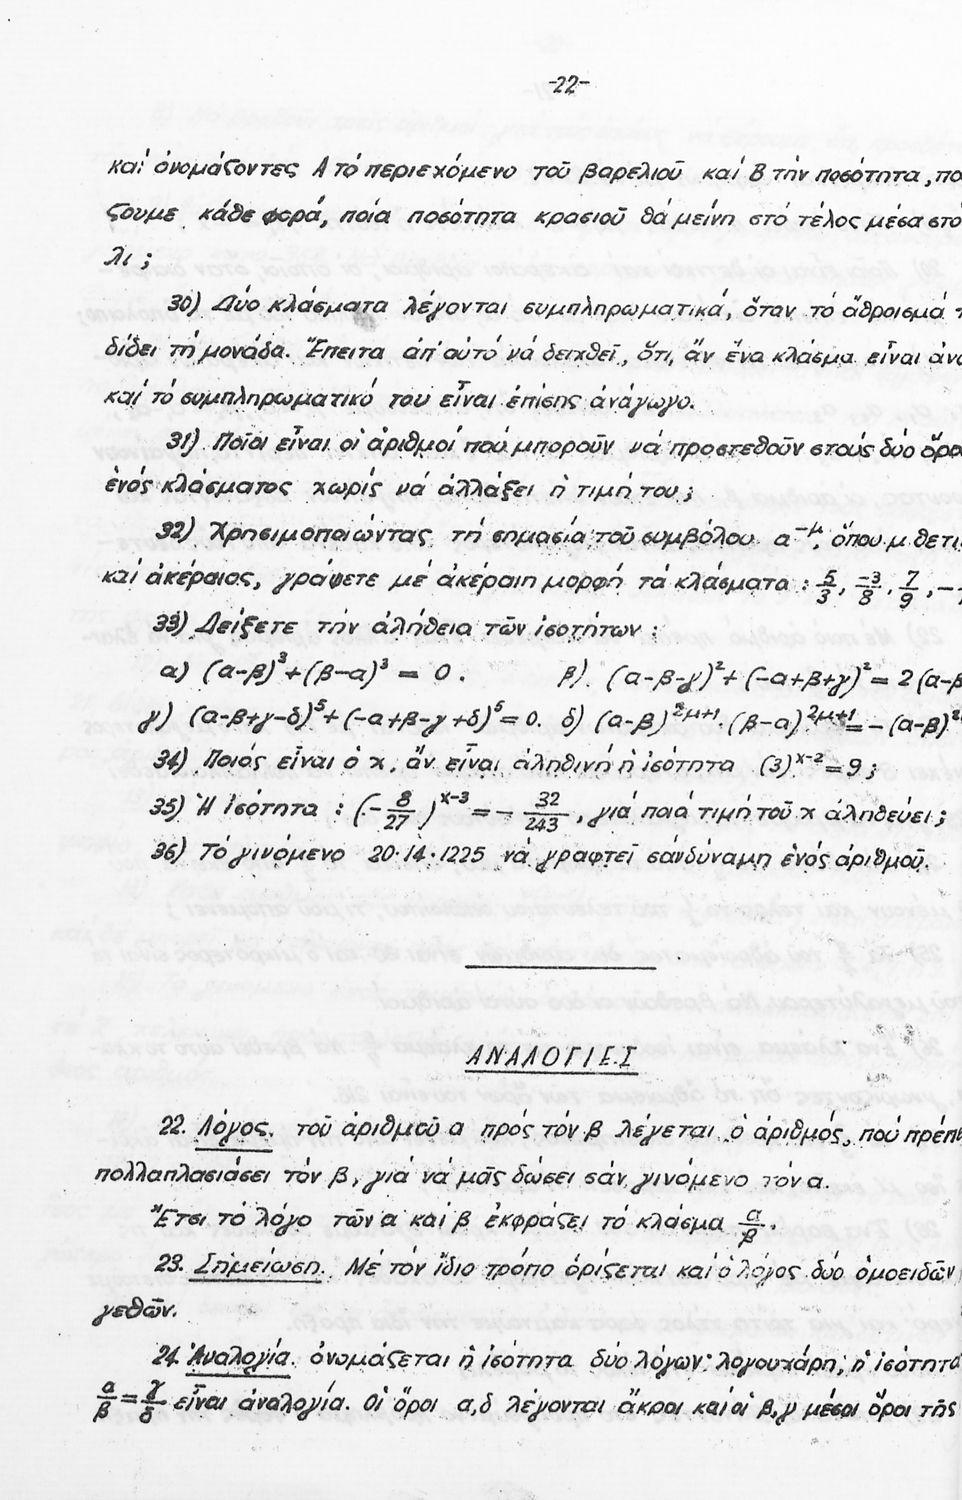 -22-
καί ὀνομάζοντες Α τό περιεχόμενο τοῦ βαρελιοῦ καί Β τήν ποσότητα, πο
ζουμε κάθε φορά, ποία ποσότητα κρασιοῦ θά μείνη στό τέλος μέσα στό
λι;
30) Δύο κλάσματα λέγονται συμπληρωματικά, ὅταν τό ἄθροισμά τ
δίδει τή μονάδα. Ἔπειτα ἀπ' αὐτό νά δειχθεῖ, ὅτι, ἄν ἕνα κλάσμα εἶναι ἀνά
καί τό συμπληρωματικό του εἶναι ἐπίσης ἀνάγωγο.
31) Ποῖοι εἶναι οἱ ἀριθμοί πού μποροῦν νά προστεθοῦν στούς δύο ὅρο
ἑνός κλάσματος χωρίς νά ἀλλάξει ἡ τιμή του;
32) Χρησιμοποιώντας τή σημασία τοῦ συμβόλου α⁻μ, ὅπου μ θετι
καί ἀκέραιος, γράψετε μέ ἀκέραιη μορφή τά κλάσματα : 5/3, -3/8, 7/9, -
33) Δείξετε τήν ἀλήθεια τῶν ἰσοτήτων :
α) (α-β)³+(β-α)³ = 0. β). (α-β-γ)²+(-α+β+γ)²= 2(α-β
γ) (α-β+γ-δ)⁵+(-α+β-γ+δ)⁵=0. δ) (α-β)^2μ+1.(β-α)^2μ+1=-(α-β)²
34) Ποιός εἶναι ὁ x, ἄν εἶναι ἀληθινή ἡ ἰσότητα (3)^x-2=9;
35) Ἡ ἰσότητα : (-8/27)^x-3=-32/243, γιά ποιά τιμή τοῦ x ἀληθεύει;
36) Τό γινόμενο 20·14·1225 νά γραφτεῖ σάν δύναμη ἑνός ἀριθμοῦ.
ΑΝΑΛΟΓΙΕΣ
22. Λόγος. τοῦ ἀριθμοῦ α πρός τόν β λέγεται ὁ ἀριθμός, πού πρέπ
πολλαπλασιάσει τόν β, γιά νά μᾶς δώσει σάν γινόμενο τόν α.
Ἔτσι τό λόγο τῶν α καί β ἐκφράζει τό κλάσμα α/β.
23. Σημείωση. Μέ τόν ἴδιο τρόπο ὁρίζεται καί ὁ λόγος δύο ὁμοειδῶν
γεθῶν.
24. Ἀναλογία. ὀνομάζεται ἡ ἰσότητα δύο λόγων· λογουχάρη, ἡ ἰσότητα
α/β=γ/δ εἶναι ἀναλογία. Οἱ ὅροι α,δ λέγονται ἄκροι καί οἱ β,γ μέσοι ὅροι τῆς